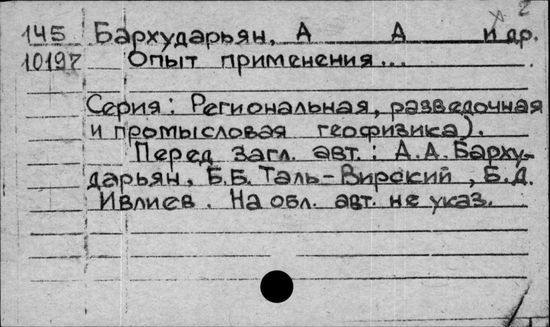 2
145 Бархударьян, А А и др.
10197 Опыт применения...
Серия: Региональная, разведочная
и промысловая геофизика).
Перед загл. авт.: А.А.Барху-
дарьян, Б.Б.Таль-Вирский, Б.Д.
Ивлиев. На обл. авт. не указ.